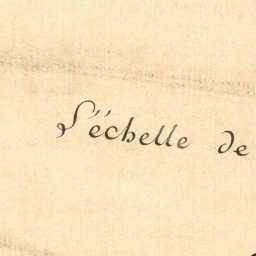 L'échelle de